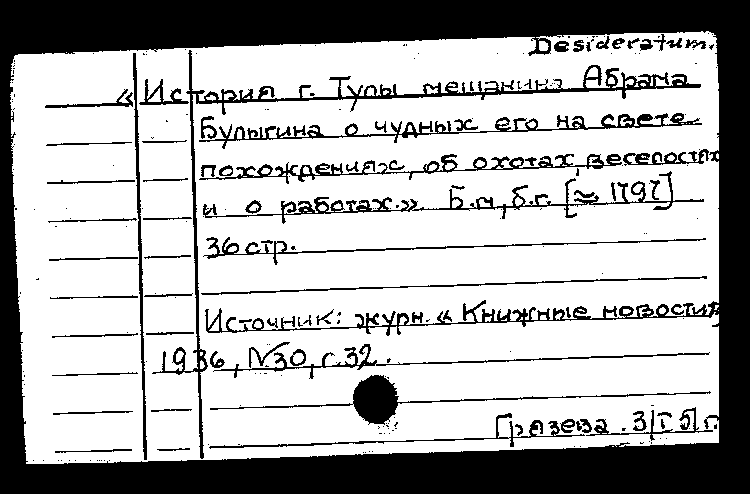 Desideratum.
«История г. Тулы мещанина Абрама
Булыгина о чудных его на свете
похождениях, об охотах, веселостях
и о работах.» Б.м, б.г. [≈ 1797]
36 стр.
Источник: журн. «Книжные новости»
1936, №30, с.32.
Грязева. 3/I 51 г.